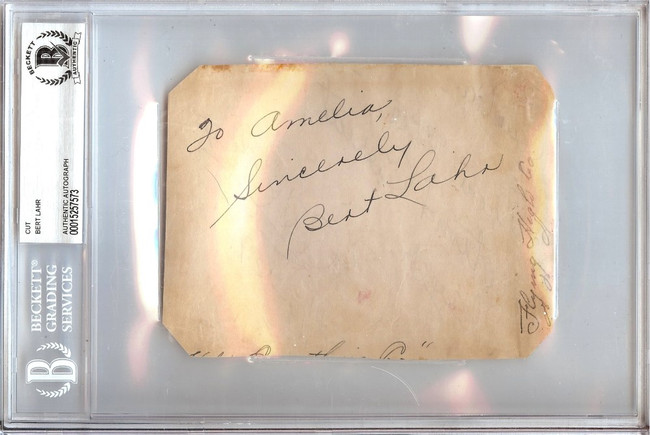 To Amelia,
Sincerely
Bert Lahr
Flying High Co
BECKETT
AUTHENTIC
CUT
BERT LAHR
AUTHENTIC AUTOGRAPH
00015257573
BECKETT®
GRADING
SERVICES